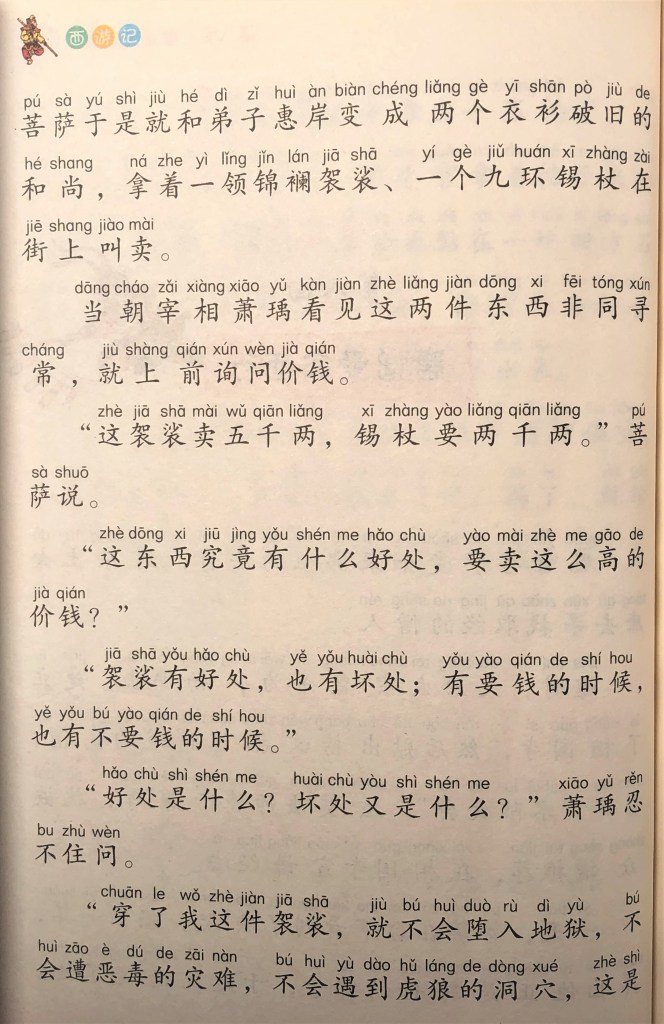 西游记
pú sà yú shì jiù hé dì zǐ huì àn biàn chéng liǎng gè yī shān pò jiù de
菩萨于是就和弟子惠岸变成两个衣衫破旧的
hé shang ná zhe yì lǐng jǐn lán jiā shā yí gè jiǔ huán xī zhàng zài
和尚，拿着一领锦襕袈裟、一个九环锡杖在
jiē shang jiào mài
街上叫卖。
dāng cháo zǎi xiàng xiāo yǔ kàn jiàn zhè liǎng jiàn dōng xi fēi tóng xún
当朝宰相萧瑀看见这两件东西非同寻
cháng jiù shàng qián xún wèn jià qián
常，就上前询问价钱。
zhè jiā shā mài wǔ qiān liǎng xī zhàng yào liǎng qiān liǎng pú
“这袈裟卖五千两，锡杖要两千两。”菩
sà shuō
萨说。
zhè dōng xi jiū jìng yǒu shén me hǎo chù yào mài zhè me gāo de
“这东西究竟有什么好处，要卖这么高的
jià qián
价钱？”
jiā shā yǒu hǎo chù yě yǒu huài chù yǒu yào qián de shí hou
“袈裟有好处，也有坏处；有要钱的时候，
yě yǒu bú yào qián de shí hou
也有不要钱的时候。”
hǎo chù shì shén me huài chù yòu shì shén me xiāo yǔ rěn
“好处是什么？坏处又是什么？”萧瑀忍
bu zhù wèn
不住问。
chuān le wǒ zhè jiàn jiā shā jiù bú huì duò rù dì yù bú
“穿了我这件袈裟，就不会堕入地狱，不
huì zāo è dú de zāi nàn bú huì yù dào hǔ láng de dòng xué zhè shì
会遭恶毒的灾难，不会遇到虎狼的洞穴，这是